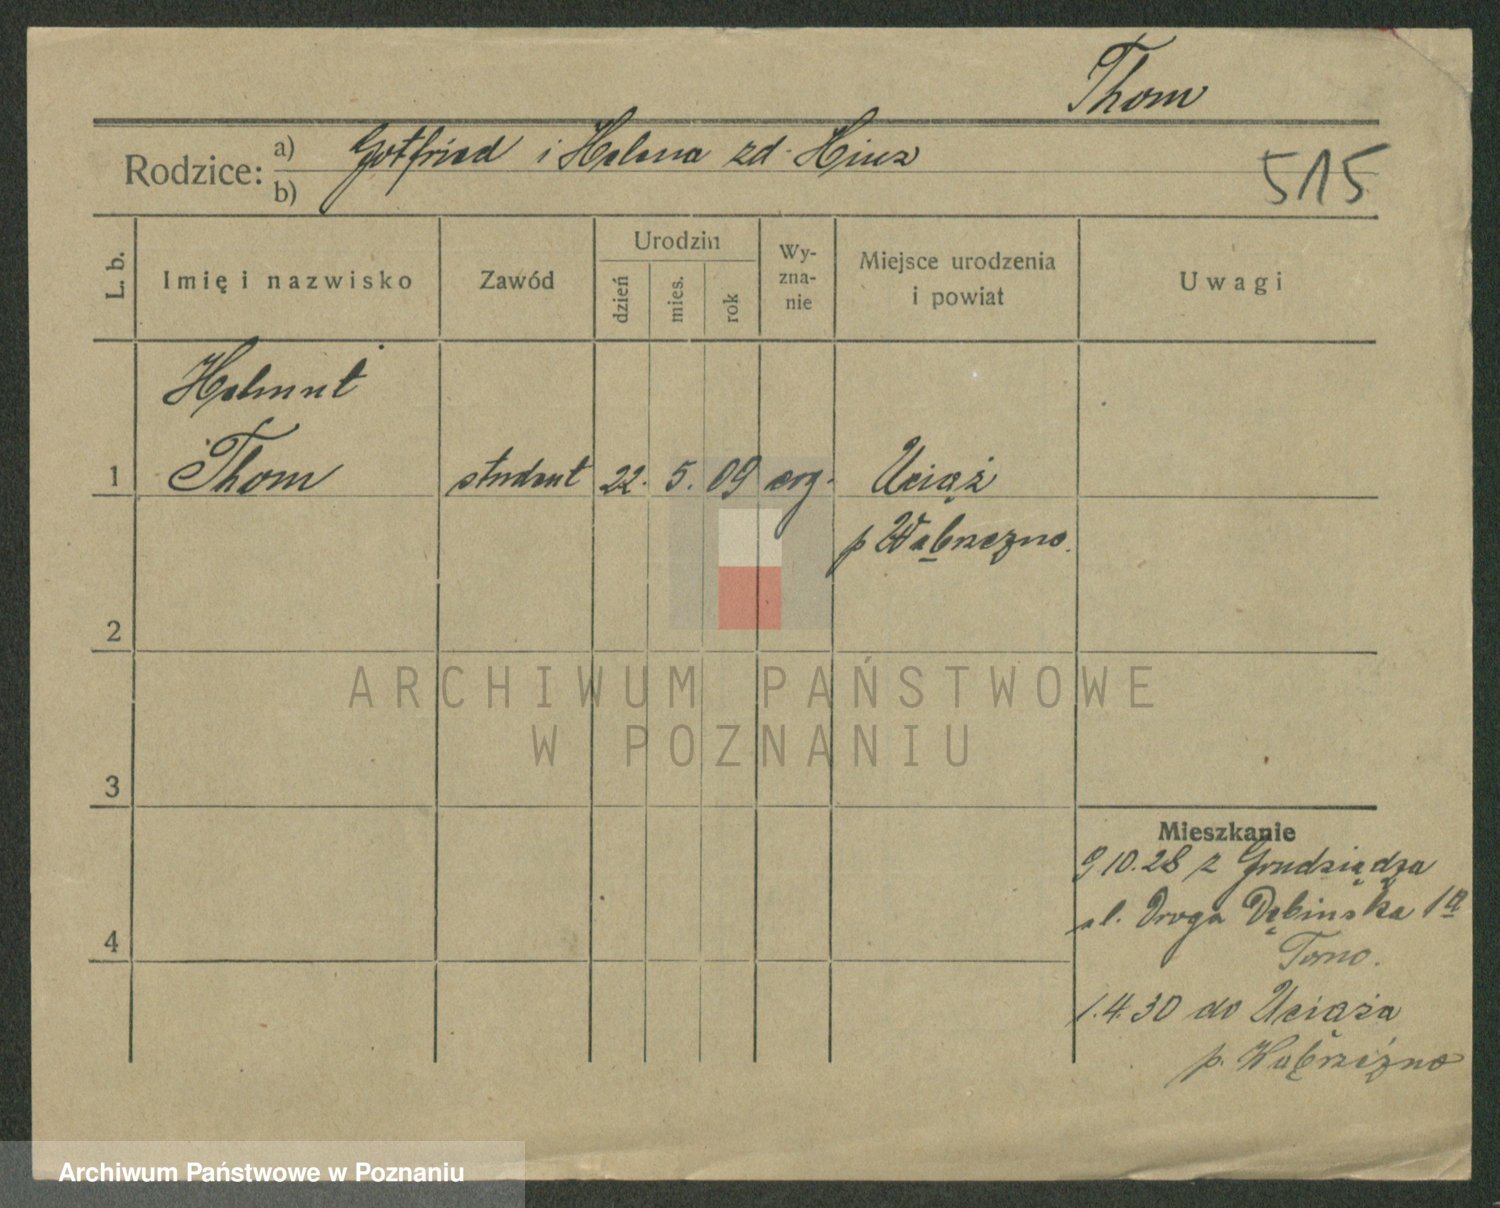 Thom
Rodzice: a) Gotfried i Helena zd. Hinz
b)
515
L. b.
Imię i nazwisko
Zawód
Urodzin
dzień
mies.
rok
Wy-
zna-
nie
Miejsce urodzenia
i powiat
Uwagi
Helmut
1 Thom student 22. 5. 09 ewg. Uciąż
p Wąbrzeźno.
2
3
4
Mieszkanie
9 10.28 z Grudziądza
ul. Droga Dębinska 1a
1.4.30 do Uciąża
p. Wąbrzeźno
ARCHIWUM PAŃSTWOWE
W POZNANIU
Archiwum Państwowe w Poznaniu